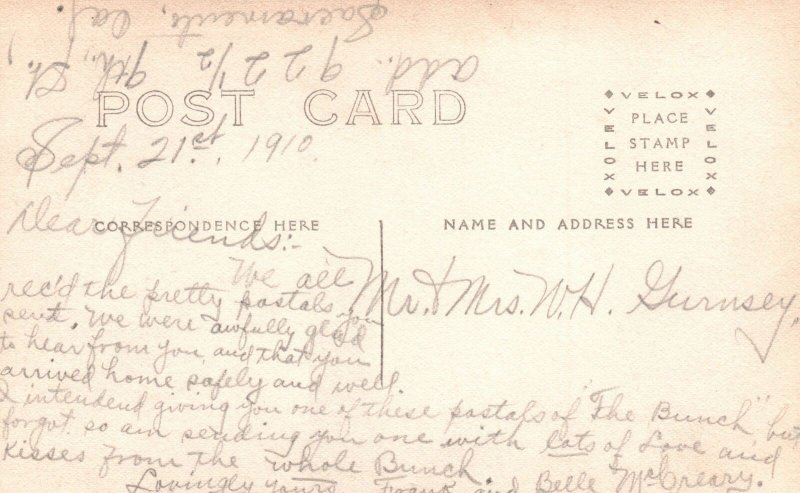 add. 922 1/2 9th., St.,
Sacramento, Cal.
POST CARD
VELOX
VELOX
PLACE
STAMP
HERE
VELOX
VELOX
Sept. 21st, 1910.
CORRESPONDENCE HERE
NAME AND ADDRESS HERE
Dear Friends:-
We all
rec'd the pretty postals you
sent. We were awfully glad
to hear from you, and that you
arrived home safely and well.
I intendend giving you one of these postals of "The Bunch" but
forgot. so am sending you one with lots of Love and
Kisses from the whole Bunch.
Lovingly yours, Frank and Belle McCreary.
Mr. & Mrs. W. H. Gurnsey.